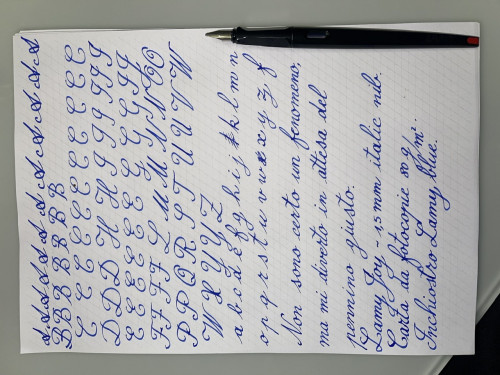 A A A A A A A A A A A A
B B B B B B B
C C C C C C C C C C C
D D D H H I I I I I
E E E E E G G G I I
F F F F L M M N N O O
P P Q R S T U U V W
W X Y Y Z
a b c d e f g h i j k k l m n
o p q r s t u v w x y z z f
Non sono certo un fenomeno,
ma mi diverto in attesa del
pennino giusto.
Lamy Joy - 1.5 mm italic nib.
Carta da fotocopie 80 g/m².
Inchiostro Lamy blue.